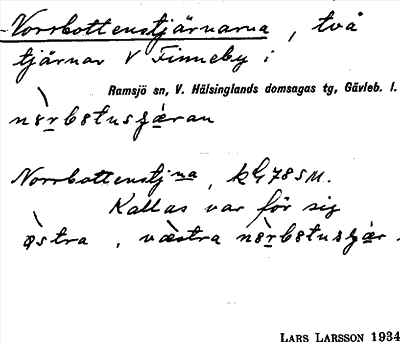 Norrbottenstjärnarna, två
tjärnar V Finneby i
Ramsjö sn, V. Hälsinglands domsagas tg, Gävleb. l.
Norrbottenstjna, kbl 78 SM.
Kallas var för sig
östra, västra
LARS LARSSON 1934